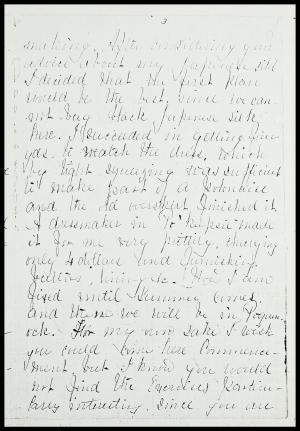 3
making. After considering your
advice about my Japanese silk
I decided that the first plan
would be the best, since we can-
not buy black Japanese silk
here. I succeeded in getting five
yds. to match the dress, which
by tight squeezing was sufficient
to make part of a polonaise
and the old overskirt finished it.
A dressmaker in Po'keepsie made
it for me very prettily, charging
only 4 dollars and furnishing
buttons, lining &c. Now I am
fixed until Summer comes,
and then we will be in
my own sake I wish
you could come here Commence-
ment, but I know you would
not find the Exercises particu-
larly interesting, since you are